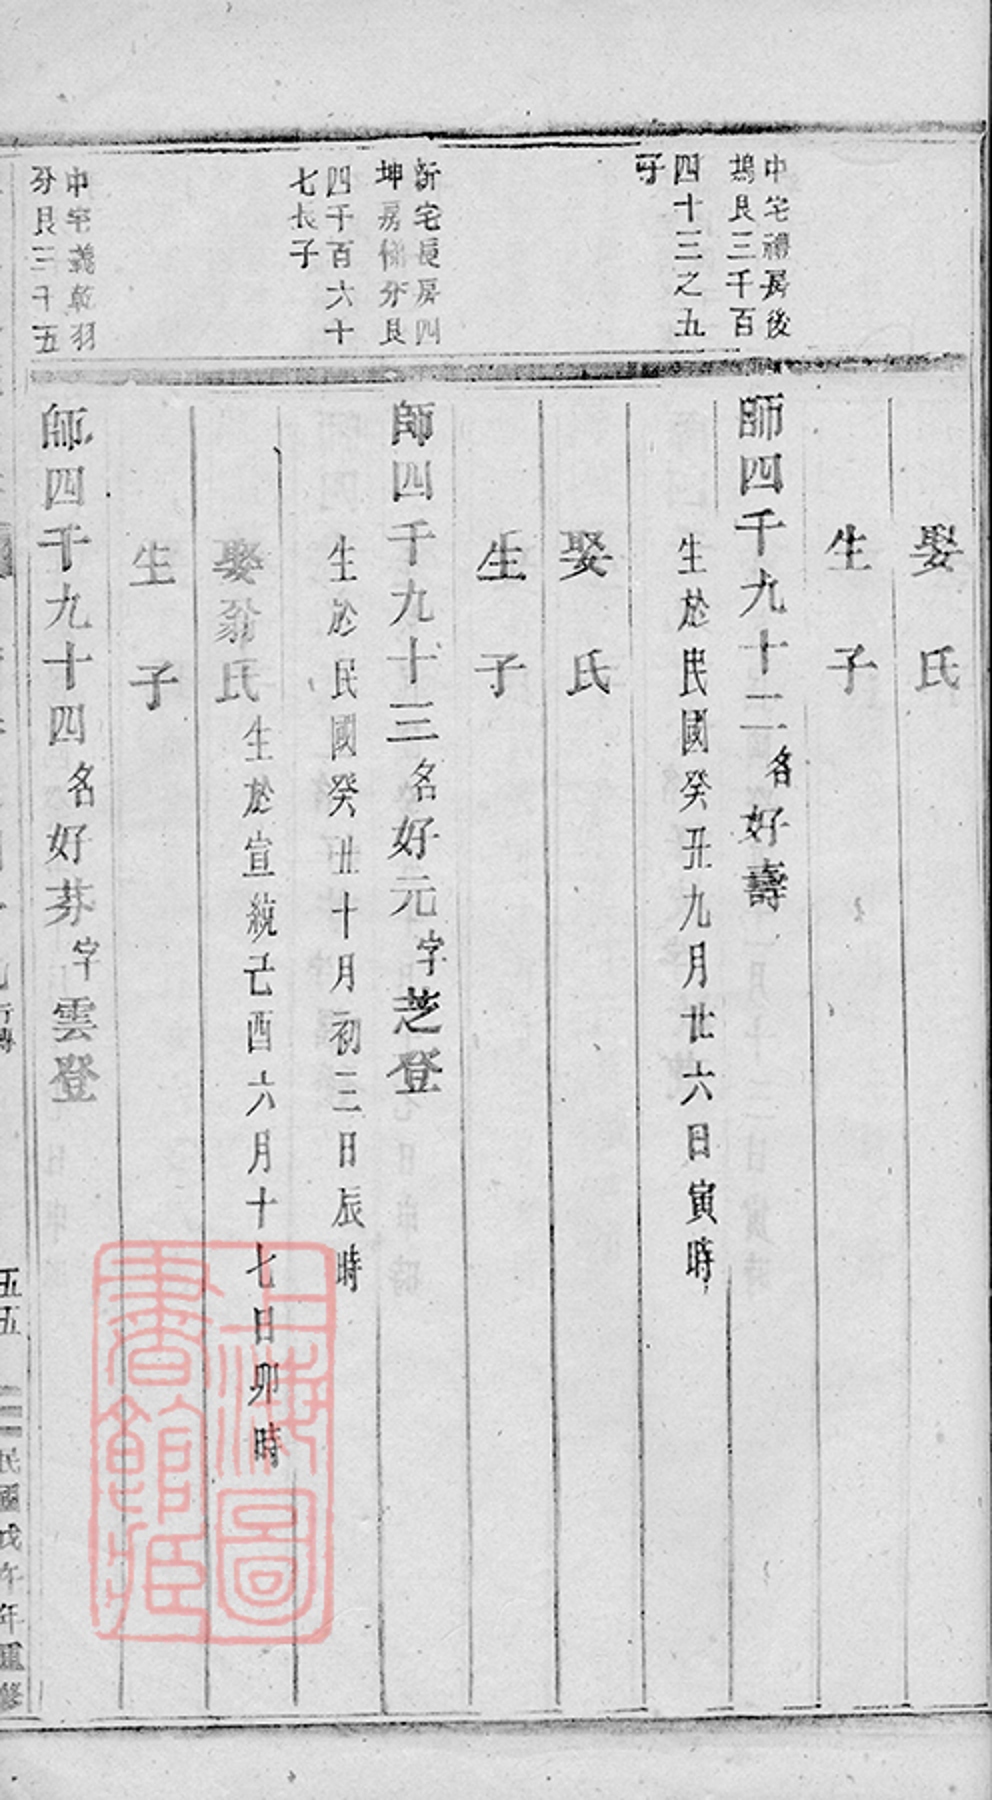 娶　氏
生　子
中宅禮房後
塢艮三千百
四十三之五
子
師四千九十二名好壽
生於民國癸丑九月廿六日寅時
娶　氏
生　子
新宅長房四
坤房分艮
四千百六十
七長子
師四千九十三名好元字芝登
生於民國癸丑十月初三日辰時
娶翁氏生於宣統己酉六月十七日卯時
生　子
中宅義乾羽
分艮三千五
師四千九十四名好芬字雲登
行傳
五五
民國戊午年重修
上海圖
書館藏